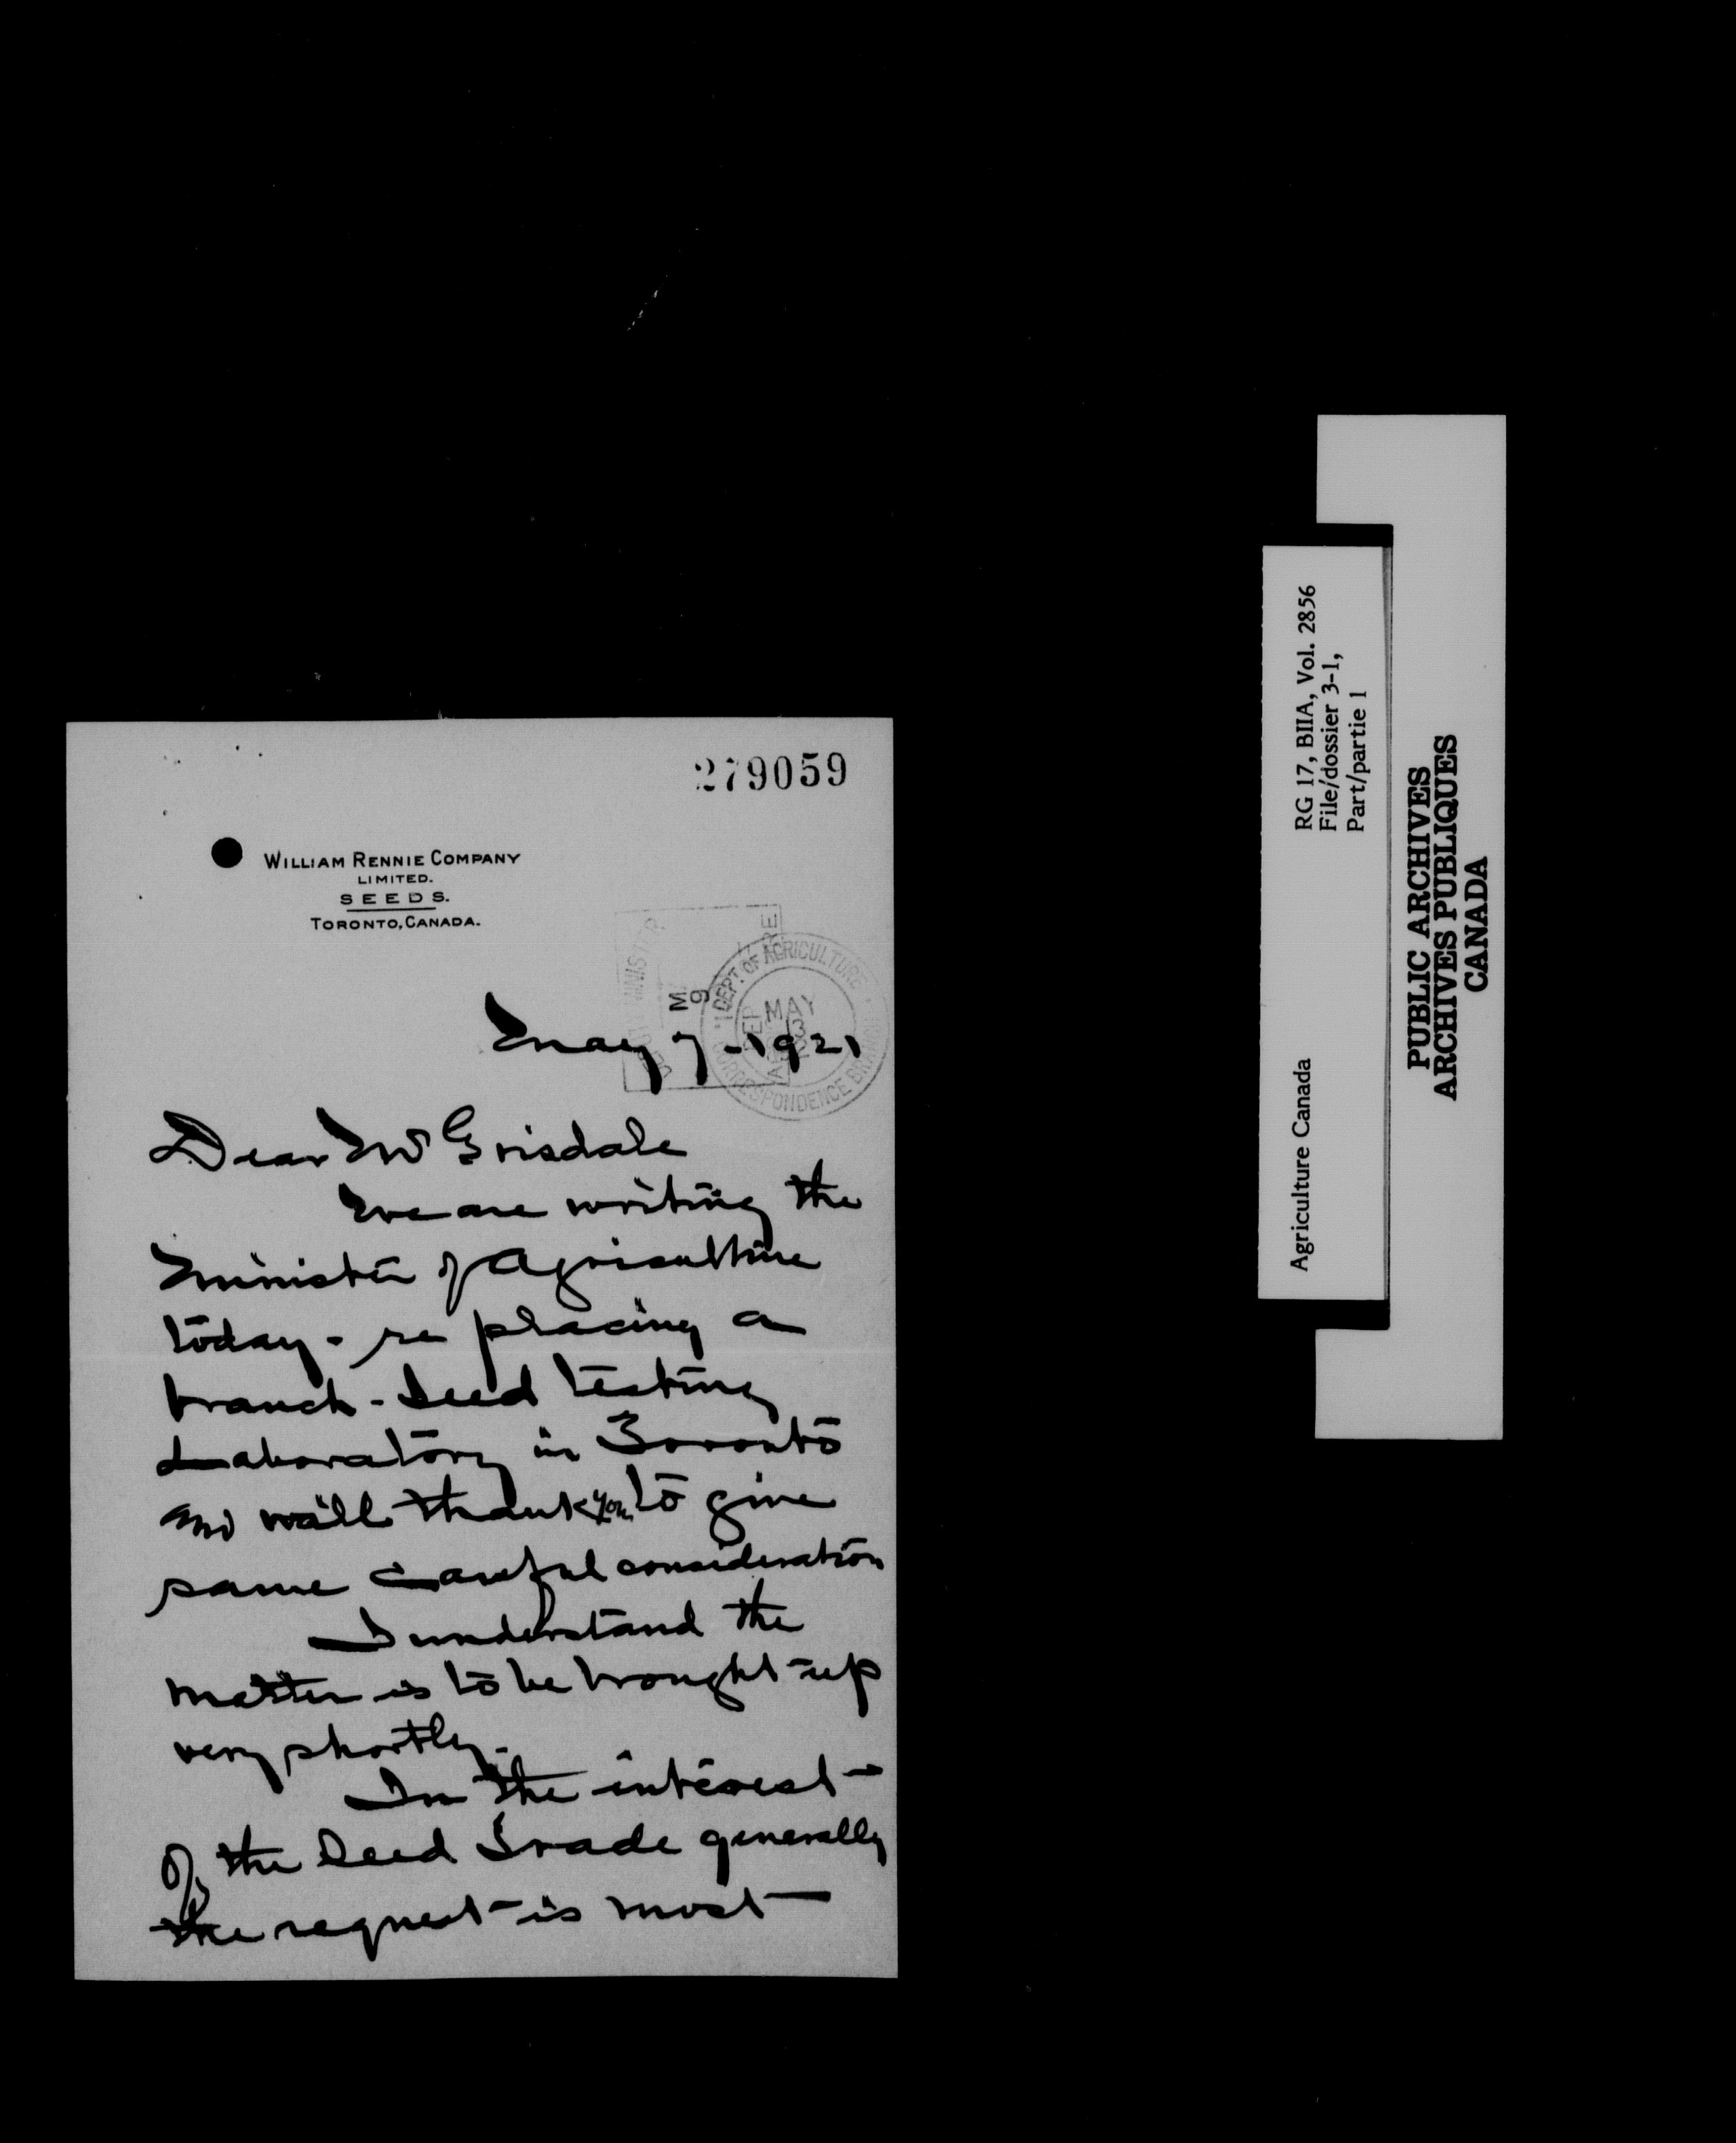 279059
WILLIAM RENNIE COMPANY
LIMITED.
SEEDS.
TORONTO, CANADA.
DEPT. OF AGRICULTURE
MAY
CORRESPONDENCE BRANCH
May 7 - 1921
Dear Mr Grisdale
We are writing the
Minister of Agriculture
today - re placing a
branch - Seed testing
Laboratory in Toronto
and will thank you to give
same careful consideration
I understand the
matter is to be brought up
very shortly.
In the interest
of the Seed Trade generally
the request is most
Agriculture Canada
RG 17, BIIA, Vol. 2856
File/dossier 3-1,
Part/partie 1
PUBLIC ARCHIVES
ARCHIVES PUBLIQUES
CANADA